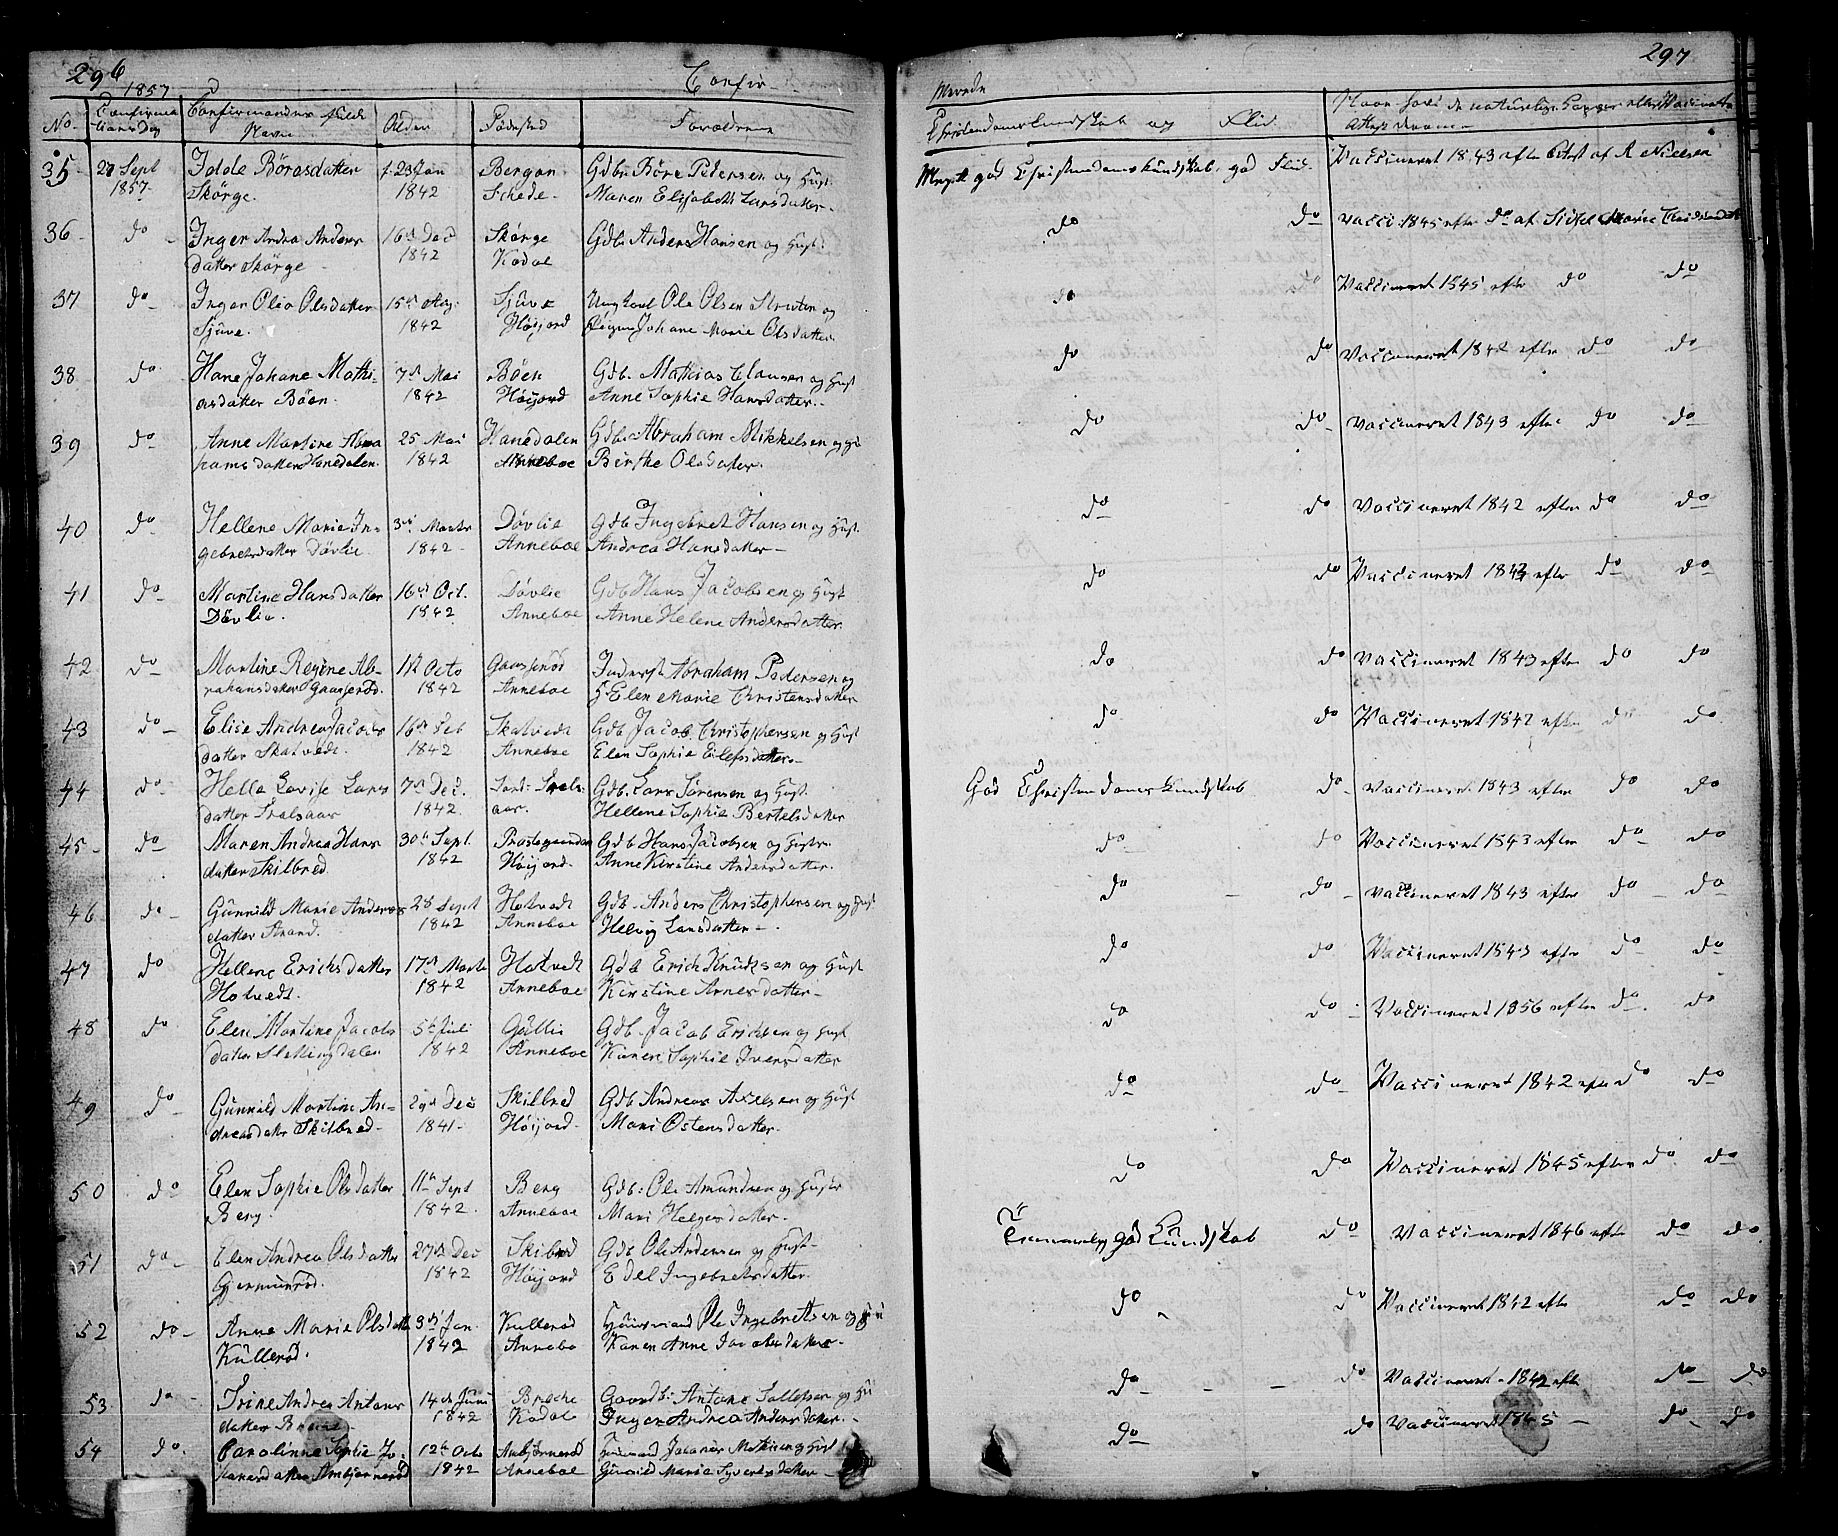 296
1857
Confir-
No.
Confirma
tions Dag
Confirmandens fulde
Navn
Alder
Fødested
Forældrene
35
27 Sept
1857.
Idale Börasdatter
Skörge.
f. 23 Jan
1842
Bergan
Schede-
Gdb. Böre Pedersen og Hust
Maren Elisabeth Larsdatter-
36
do
Inger Andra Anders
datter Skörge
16de Dec
1842
Skörge
Kodal
Gdb. Anders Hansen og Hust.
37
do
Inger Olea Olsdatter
Sjüve.
15de Aug.
1842
Sjüve
Höijord
Ungkarl Ole Olsen
og
Pigen Johane Marie Olsdatter
38
do
Hane Johane Mathi-
asdatter Böen.
7de Mai
1842
Böen
Höijord
Gdb. Mathias Clausen og Hust
Anne Sophie Hansdatter.
39
do
Anne Martine Abra
hamsdatter Hanedalen.
25 Mai
1842
Hanedalen
Anneboe
Gdb. Abraham Mikkelsen og
Birthe Olsdatter.
40
do
Hellene Marie In-
gebretsdatter Dövlie
3de Marts
1842
Dövlie
Anneboe
Gdb Ingebret Hansen og Hust.
Andrea Hansdatter-
41
do
Martine Hansdatter
Dövlie.
16de Oct.
1842
Dövlie
Anneboe
Gdb Hans Jacobsen og Hust
Anne Helene Andersdatter.
42
do
Martine Regine Ab-
rahamsdatter Gaasserød.
11te Octo
1842
Gaasserød
Anneboe
Inderst Abraham Pedersen og
H. Elen Marie Christensdatter
43
do
Elise Andrea Jacobs
datter Skatvedt.
16de Feb
1842
Skatvedt
Anneboe
Gdb Jacob Christophersen og Hust
Elen Sophie Eilefsdatter-
44
do
Helle Lovise Lars
datter
7de Dec.
1842.
Gdb. Lars Sörensen og Hust.
Hellene Sophie Bertelsdatter
45
do
Maren Andrea Hans
datter Skilbred
30te Sept.
1842
Höijord.
Gdb Hans Jacobsen og Hustr
Anne Kirstine Andersdatter.
46
do
Günnild Marie Anders
datter Strand.
28 Sept
1842
Hotvedt
Anneboe
Gdb. Anders Christophersen og Hust
Helvig Larsdatter-
47
do
Hellene Erichsdatter
Hotvedt.
17de Marts
1842
Hotvedt
Anneboe
Gdb Erich Knudsen og Hust
Kirstine Arnesdatter-
48
do
Elen Martine Jacobs
datter Slettingdalen
5te Juli
1842
Gullie
Anneboe
Gdb. Jacob Erichsen og Hust
Karen Sophie Iversdatter
49
do
Günnild Martine An-
dreasdatter Skilbred
29de Dec
1841-
Skilbred
Höijord-
Gdb Andreas Axelsen og Hust
Mari Ostensdatter.
50
do
Elen Sophie Olsdatter
Berg.
11te Sept
1842.
Berg
Anneboe
Gdb: Ole Amundsen og Hustr
Mari Helgersdatter-
51
do
Elen Andrea Olsdatter
Gjermunrød.
27de Dec
1842
Skibred
Höijord
Gdb Ole Andersen og Hust-
Edel Ingebretsdatter.
52
do
Anne Marie Olsdatt
Küllerød.
3de Jan.
1842
Küllerød
Annebo
Huusmand Ole Ingebretsen og
Karen Anne Jacobsdatter-
53
do
Trine Andrea Antons
datter
14de Juni
1842
Kodal
Gaardb. Antone Tollefsen og
Inger Andrea Andersdatter.-
54
do
Carolinne Sophie Jo
hanesdatter Ambjørnerød
12te Octo
1842
Anbjørnerød
Anneboe
Huusmand Johanes Mathisen og Hust
Günild Marie Syvertsdatter-
297
Merede
Christendomskundskab og Flid.
Naar havt de naturlige Kopper eller Vaccinatt
Attest derom
Meget god Christendomskundskab. god Flid.
Vaccineret 1843 efter Attest af A Nielsen
do do Vacci. 1845 efter do af Sidsel Marie
do do Vaccineret 1845 efter do do
do do Vaccineret 1842 efter do do
do do Vaccineret 1843 efter do do
do do Vaccineret 1842 efter do do
do do Vaccineret 1843 efter do do
do do Vaccineret 1843 efter do do
do do Vaccineret 1842 efter do do
God Christendomskundskab do- Vaccineret 1843 efter do do
do do Vaccineret 1843 efter do do
do do- Vaccineret 1843 efter do do
do do Vaccineret 1843 efter do do
do do- Vaccineret 1856 efter do. do
do do Vaccineret 1842 efter do do
do do Vaccineret 1845 efter do. do
Temmelig god Kundskab do Vaccineret 1846 efter do do.
do do Vaccineret 1842 efter do do
do do Vaccineret 1842 efter do do
do do Vaccineret 1845 - do do